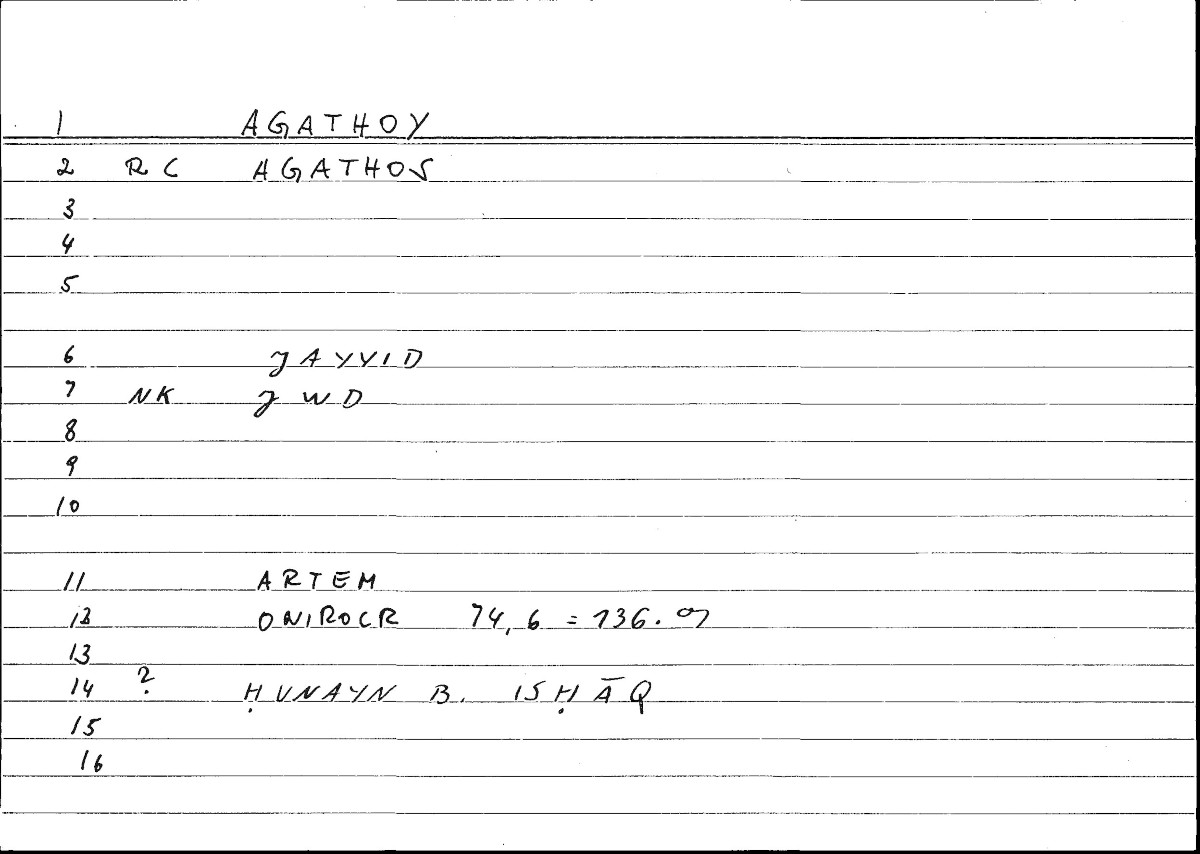 1 AGATHOY
2 RC AGATHOS
3
4
5
6 JAYYID
7 NK JWD
8
9
10
11 ARTEM
12 ONIROCR 74,6 = 136.
13
14 ? ḤUNAYN B. ISḤĀQ
15
16